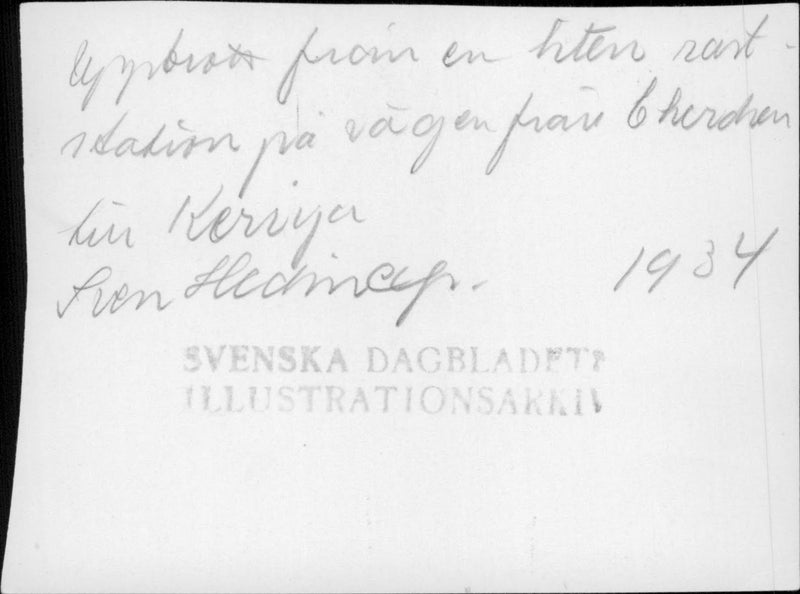 Uppbrott från en liten rast-
station på vägen från Cherchen
till Keriya
Sven Hedin exp. 1934
SVENSKA DAGBLADETS
ILLUSTRATIONSARKIV